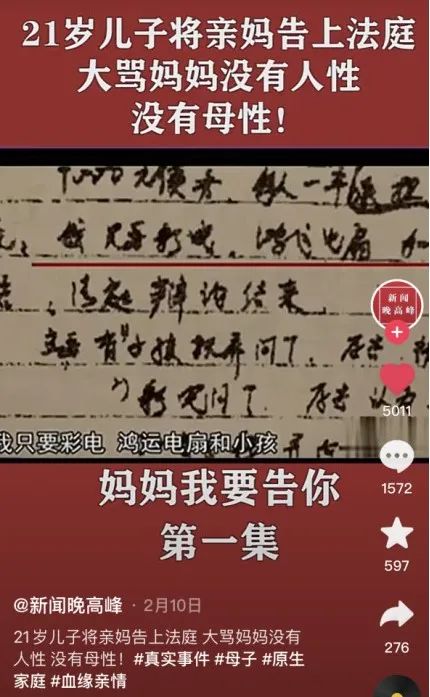 21岁儿子将亲妈告上法庭
大骂妈妈没有人性
没有母性！
我只要彩电 鸿运电扇
法庭辩论结束
我只要彩电 鸿运电扇和小孩
新闻
晚高峰
5011
1572
597
276
妈妈我要告你
第一集
@新闻晚高峰 · 2月10日
21岁儿子将亲妈告上法庭 大骂妈妈没有
人性 没有母性！#真实事件 #母子 #原生
家庭 #血缘亲情